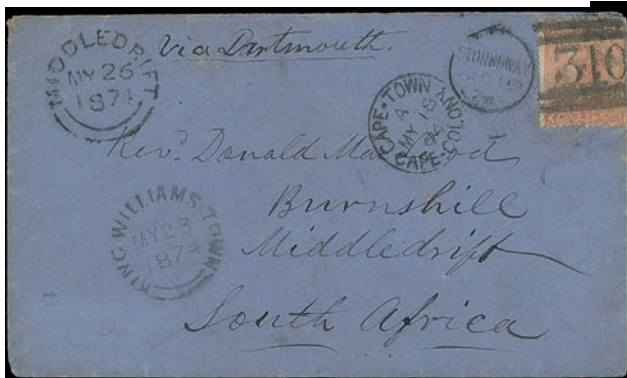 MIDDLEDRIFT
MY 26
1874
Via Dartmouth.
STORNOWAY
310
CAPE-TOWN
A
MY 18
74
CAPE-COLONY
Revd. Donald
Burnshill
Middledrift
South Africa
KING WILLIAMS TOWN
MY 23
1874